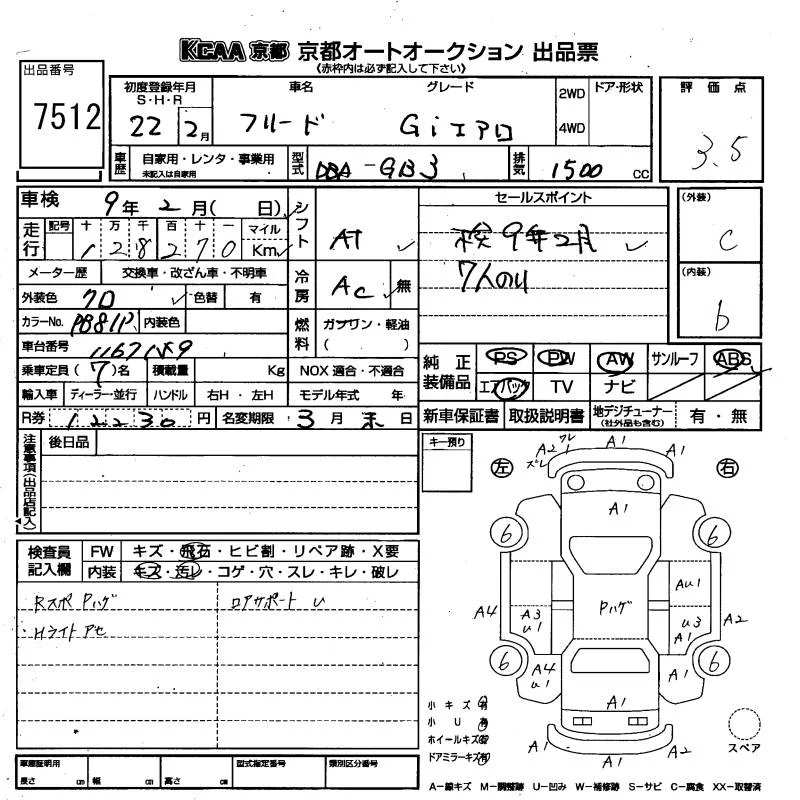 KCAA 京都 京都オートオークション 出品票
《赤枠内は必ず記入して下さい》
出品番号
7512
初度登録年月
S・H・R
22 2月
車名
フリード
グレード
Gi エアロ
2WD
4WD
ドア・形状
評価点
3.5
車歴
自家用・レンタ・事業用
未記入は自家用
型式
DBA-GB3
排気
1500 cc
車検
9年2月( 日)
シフト
AT
走行
記号 十 万 千 百 十 一
128270
マイル
Km
メーター歴 交換車・改ざん車・不明車
冷房
AC
無
外装色 クロ
色替 有
カラーNo. PB81P
内装色
燃料
ガソリン・軽油
( )
車台番号
乗車定員 (7)名
積載量 Kg
NOX 適合・不適合
輸入車 ディーラー・並行 ハンドル 右H・左H モデル年式 年
R券 12230円 名変期限 3月末日
セールスポイント
検9年2月
7人のり
(外装)
C
(内装)
b
純正装備品
PS PW AW サンルーフ ABS
エアバック TV ナビ
新車保証書 取扱説明書 地デジチューナー(社外品も含む) 有・無
注意事項(出品店記入)
後日品
検査員記入欄
FW キズ・飛石・ヒビ割・リペア跡・X要
内装 キズ・汚レ・コゲ・穴・スレ・キレ・破レ
Rスポ Pハゲ
ロアサポート U
・Hライト アセ
キー預り
左
右
A2 ワレ1 A1
ズレ
A1
A1
6
6
AU1
Pハゲ
A4
A3
U1
U3
A1
A2
6
6
A4
U1
A1
A1
A1 A1 A2
小キズ 有
小U 有
ホイールキズ 有
ドアミラーキズ 有
スペア
車庫証明用
長さ cm 幅 cm 高さ cm
型式指定番号
類別区分番号
A-線キズ M-調整跡 U-凹み W-補修跡 S-サビ C-腐食 XX-取替済